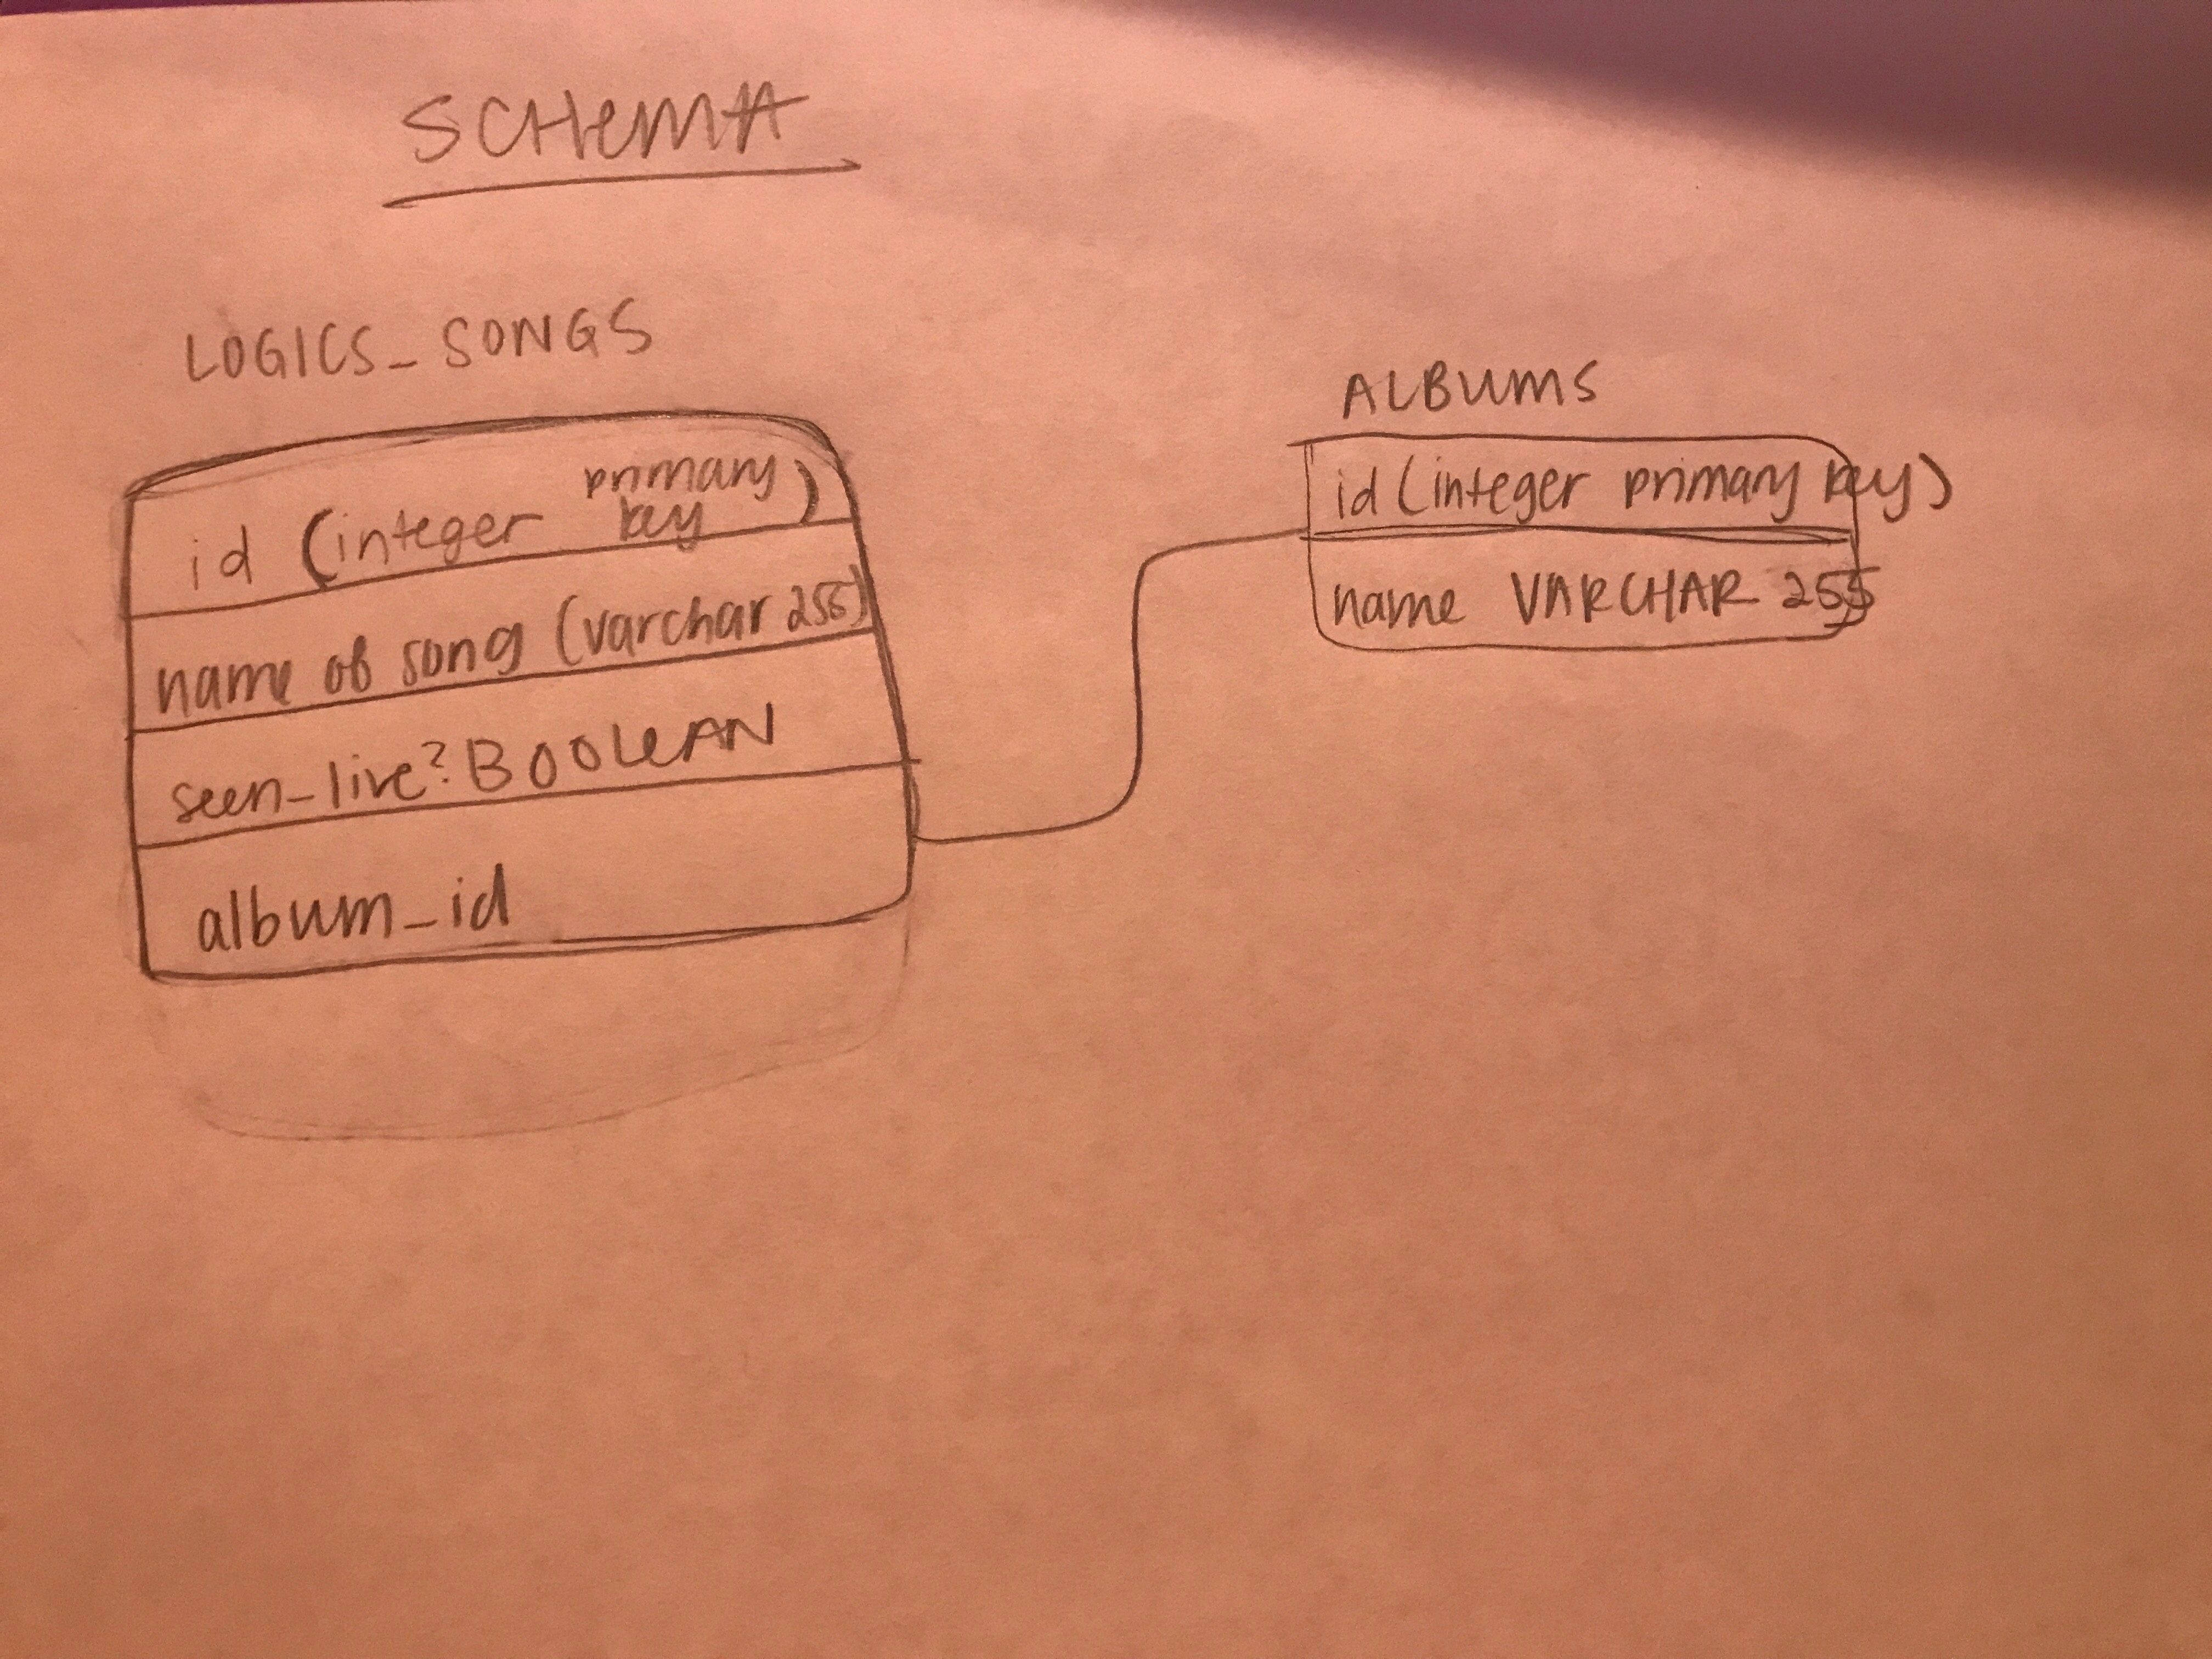 SCHEMA
LOGICS_SONGS
id (integer primary key)
name of song (varchar 255)
seen_live? BOOLEAN
album_id
ALBUMS
id (integer primary key)
name VARCHAR 255